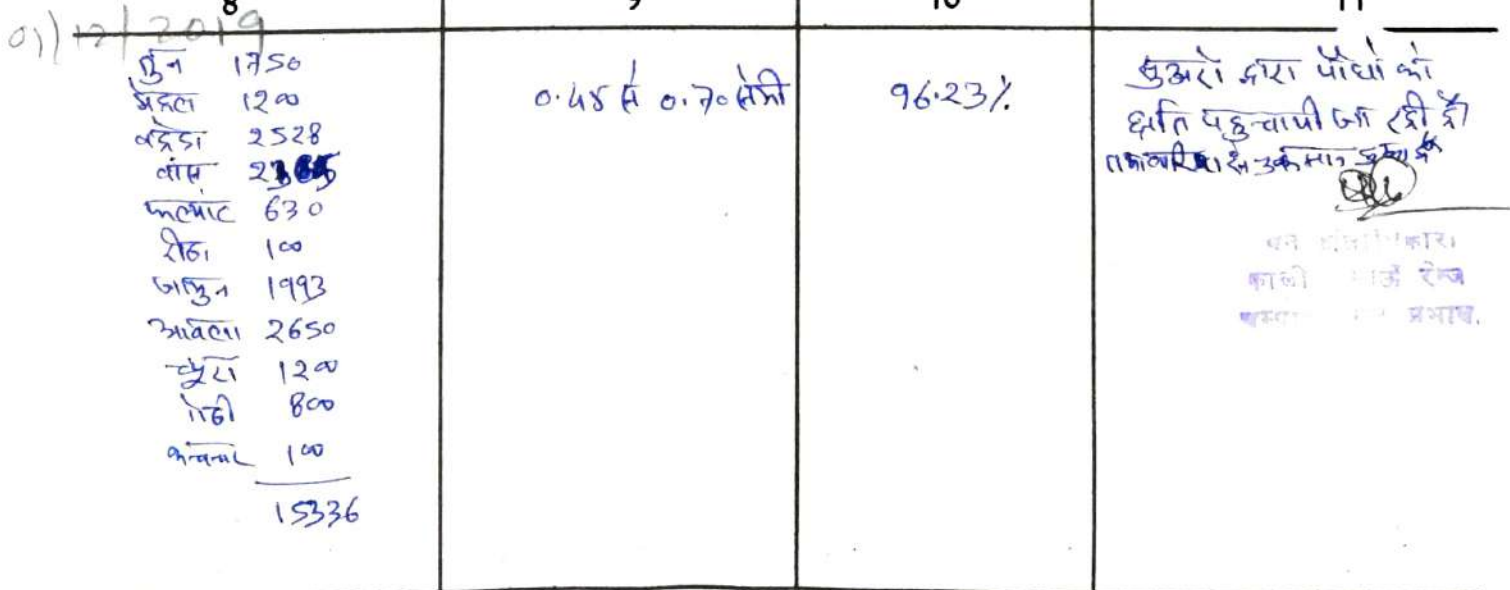 8 9 10 11
01/12/2019
तुन 1750
मेहल 1200
बहेड़ा 2528
बांस
फल्यांट 630
रीठा 100
जामुन 1993
आंवला 2650
च्यूरा 1200
गेठी 800
कचनार 100
15336
0.45 से 0.70 सेमी
96.23%
सुअरो द्वारा पौधों को
क्षति पहुचायी जा रही है
रेन्ज